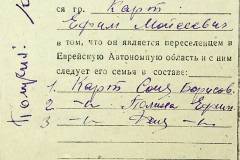 ся гр. Карт
Ефим Моисеевич
в том, что он является переселенцем в
Еврейскую Автономную область и с ним
следует его семья в составе:
1. Карт Соня Борисов.
2. -„- Полина Ефим
3. -„- -„-